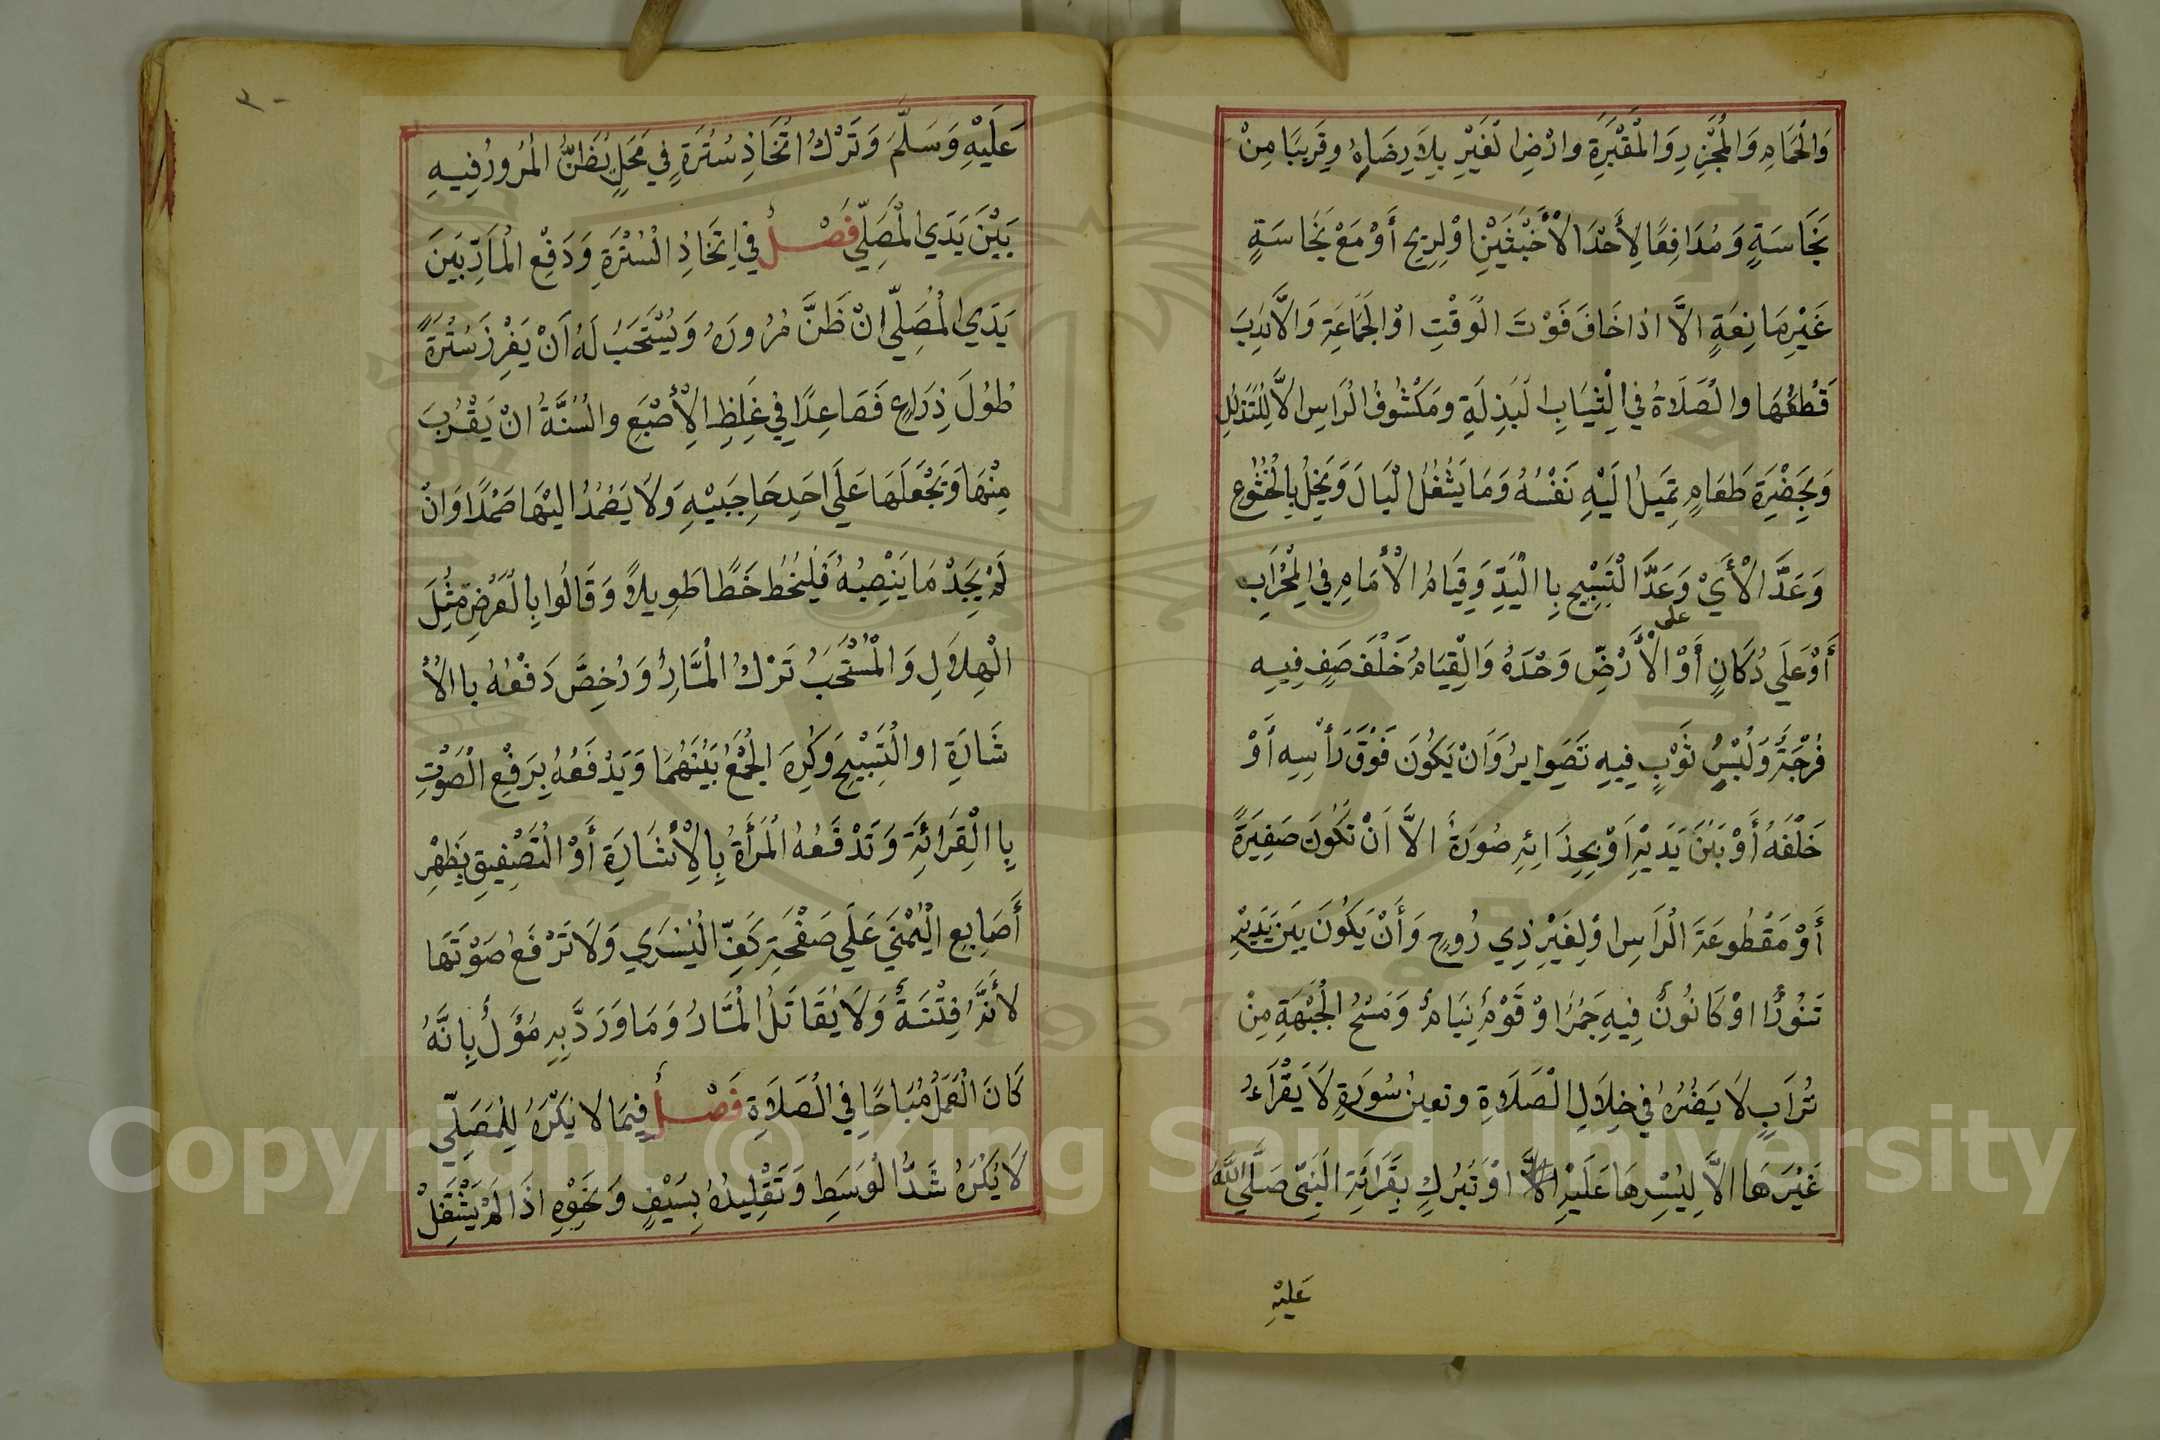 وَالْحَمَامِ وَالْمُجْزِرِ وَالْمَقْبَرَةِ وارْضِ الْغَيْرِ بِلَا رِضَاهُ وقَرِيبًا مِنْ
نَجَاسَةٍ وَمُدَافِعًا لِأَحَدَ الْأَخْبَثَيْنِ اوْ لِرِيحٍ أَوْ مَعْ نَجَاسَةٍ
غَيْرِ مَانِعَةٍ الَّا اذا خَافَ فَوْتَ الْوَقْتِ اوْ الْجَمَاعَةِ وَالَّا نُدِبَ
قَطْعُهَا والْصَلَاةُ فِي الْثِيَابِ الْبَذِلَةِ ومَكْشُوفُ الْرَاسِ الَّا لِلْتَذَلُلِ
وَبِحَضْرَةِ طَعَامٍ تَمِيلُ الَيْهِ نَفْسُهُ وَمَا يَشْغُلُ الْبَالَ وَيَخِلُ بِالْخُشُوعِ
وَعَدَّ الْأَيْ وَعَدَّ الْتَسْبِيحِ بِا الْيَدِّ وَقِيَامُ الْأمَامِ فِي الْمِحْرَابِ
أَوْ عَلَى دُكَانٍ أَوْ على الْأَرْضِّ وَحْدَهُ وَالْقِيَامُ خَلْفَ صَفٍ فِيهِ
فُرْجَةٌ وَلُبْسُ ثَوْبٍ فِيهِ تَصَوِايرُ وَانْ يَكُونَ فَوْقَ رَأْسِهِ أَوْ
خَلْفَهُ أَوْ بَيْنَ يَدَيْهِ أَوْ بِحِذَائِهِ صُورَةٌ الَّا اَنْ تَكُونَ صَغِيَرَةً
أَوْ مَقْطُوعَةَ الْرَاسِ اوْ لِغَيْرِ ذِي رُوحٍ وَأَنْ يَكُونَ بَيَنَ يَدَيْهِ
تَنُورًا اوْ كَانُونٌ فِيهِ جَمْرُ اوْ قَوْمٌ نِيَامٌ وَمَسْحُ الْجَبْهَةِ مِنْ
تُرَابٍ لَا يَضُرُهُ فِي خِلَالِ الْصَلَاةِ وتعينُ سُورَةِ لَا يَقْرَاءُ
غَيْرَهَا الَّا لِيُسْرِهَا عَلَيْهِ اوْ تَبَرُكِ بِقَرَائَةِ الَنِبَيّ صَلَّى اللَّهُ
عَلَيْهِ
٣٠
عَلَيْهِ وَسَلَّمَ وَتَرْكُ اتْخَاذِ سُتْرَةٍ فِي مَحَلٍ يُظَنُّ الْمُرُورُ فِيهِ
بَيْنَ يَدَي الْمُصَلِّي فَصْلٌ فِي اتِخَاذِ الْسُتْرَةِ وَدَفْعِ الْمَارِّ بَينَ
يَدَي الْمُصَلِّي انْ ظَنَّ مُرُورَهُ وَيُسْتَحَبُ لَهُ اَنْ يَغْرِزَ سُتْرَةً
طُولَ ذِرَاعٍ فَصَاعِدًا فِي غِلَظِ الْأَصْبَعِ والْسُنَّةُ انْ يَقْرُبَ
مِنْهَا وَيَجْعَلَهَا عَلَى احَدِ حَاجَبَيْهِ وَلَا يَصْمُدُ الَيْهَا صَمْدًا وَانْ
لَمْ يَجِدْ مَا يَنْصِبُهُ فَلْيَخُطْ خَطًّا طَوِيلًا وَقَالُوا بِالْعَرْضِ مِثْلَ
الْهِلَالِ وَالْمُسْتَحَبُ تَرْكُ الْمَارِ وَرُخِصَّ دَفْعُهُ باالْأ
شَارَةِ او الْتَسْبِيحَ وَكُرِهَ الْجَمْعُ بَيْنَهُمَا وَيَدْفَعُهُ بِرَفْعِ الْصَوْتِ
بِا الْقِرَائَةِ وَتَدْفَعُهُ الْمَرَأَةُ بِالْأشَارَةِ أَوْ الْتَصْفِيقِ بِظَهْرِ
أَصَابِعِ الْيُمْنَي عَلَي صَفْحَةِ كَفِّ الْيُسْرَي وَلَا تَرْفَعُ صَوْتَهَا
لأَنَّهُ فِتْنَةٌ وَلَا يُقَاتَلُ الْمَارُ وَمَا وَرَدَّ بِهِ مُؤَلٌ بِانَّهُ
كَانَ الْعَمَلُ مُبَاحًا فِي الْصَلَاةِ فَصْلٌ فِيمَا لا يَكْرَهُ لِلْمُصَلِّي
لَا يُكْرَهُ شَدُّ الْوَسَطِ وَتَقْلِيدُهُ بِسَيْفٍ وَنَحْوِهِ اذَا لَمْ يَشْتَغِلْ
Copyright © King Saud University